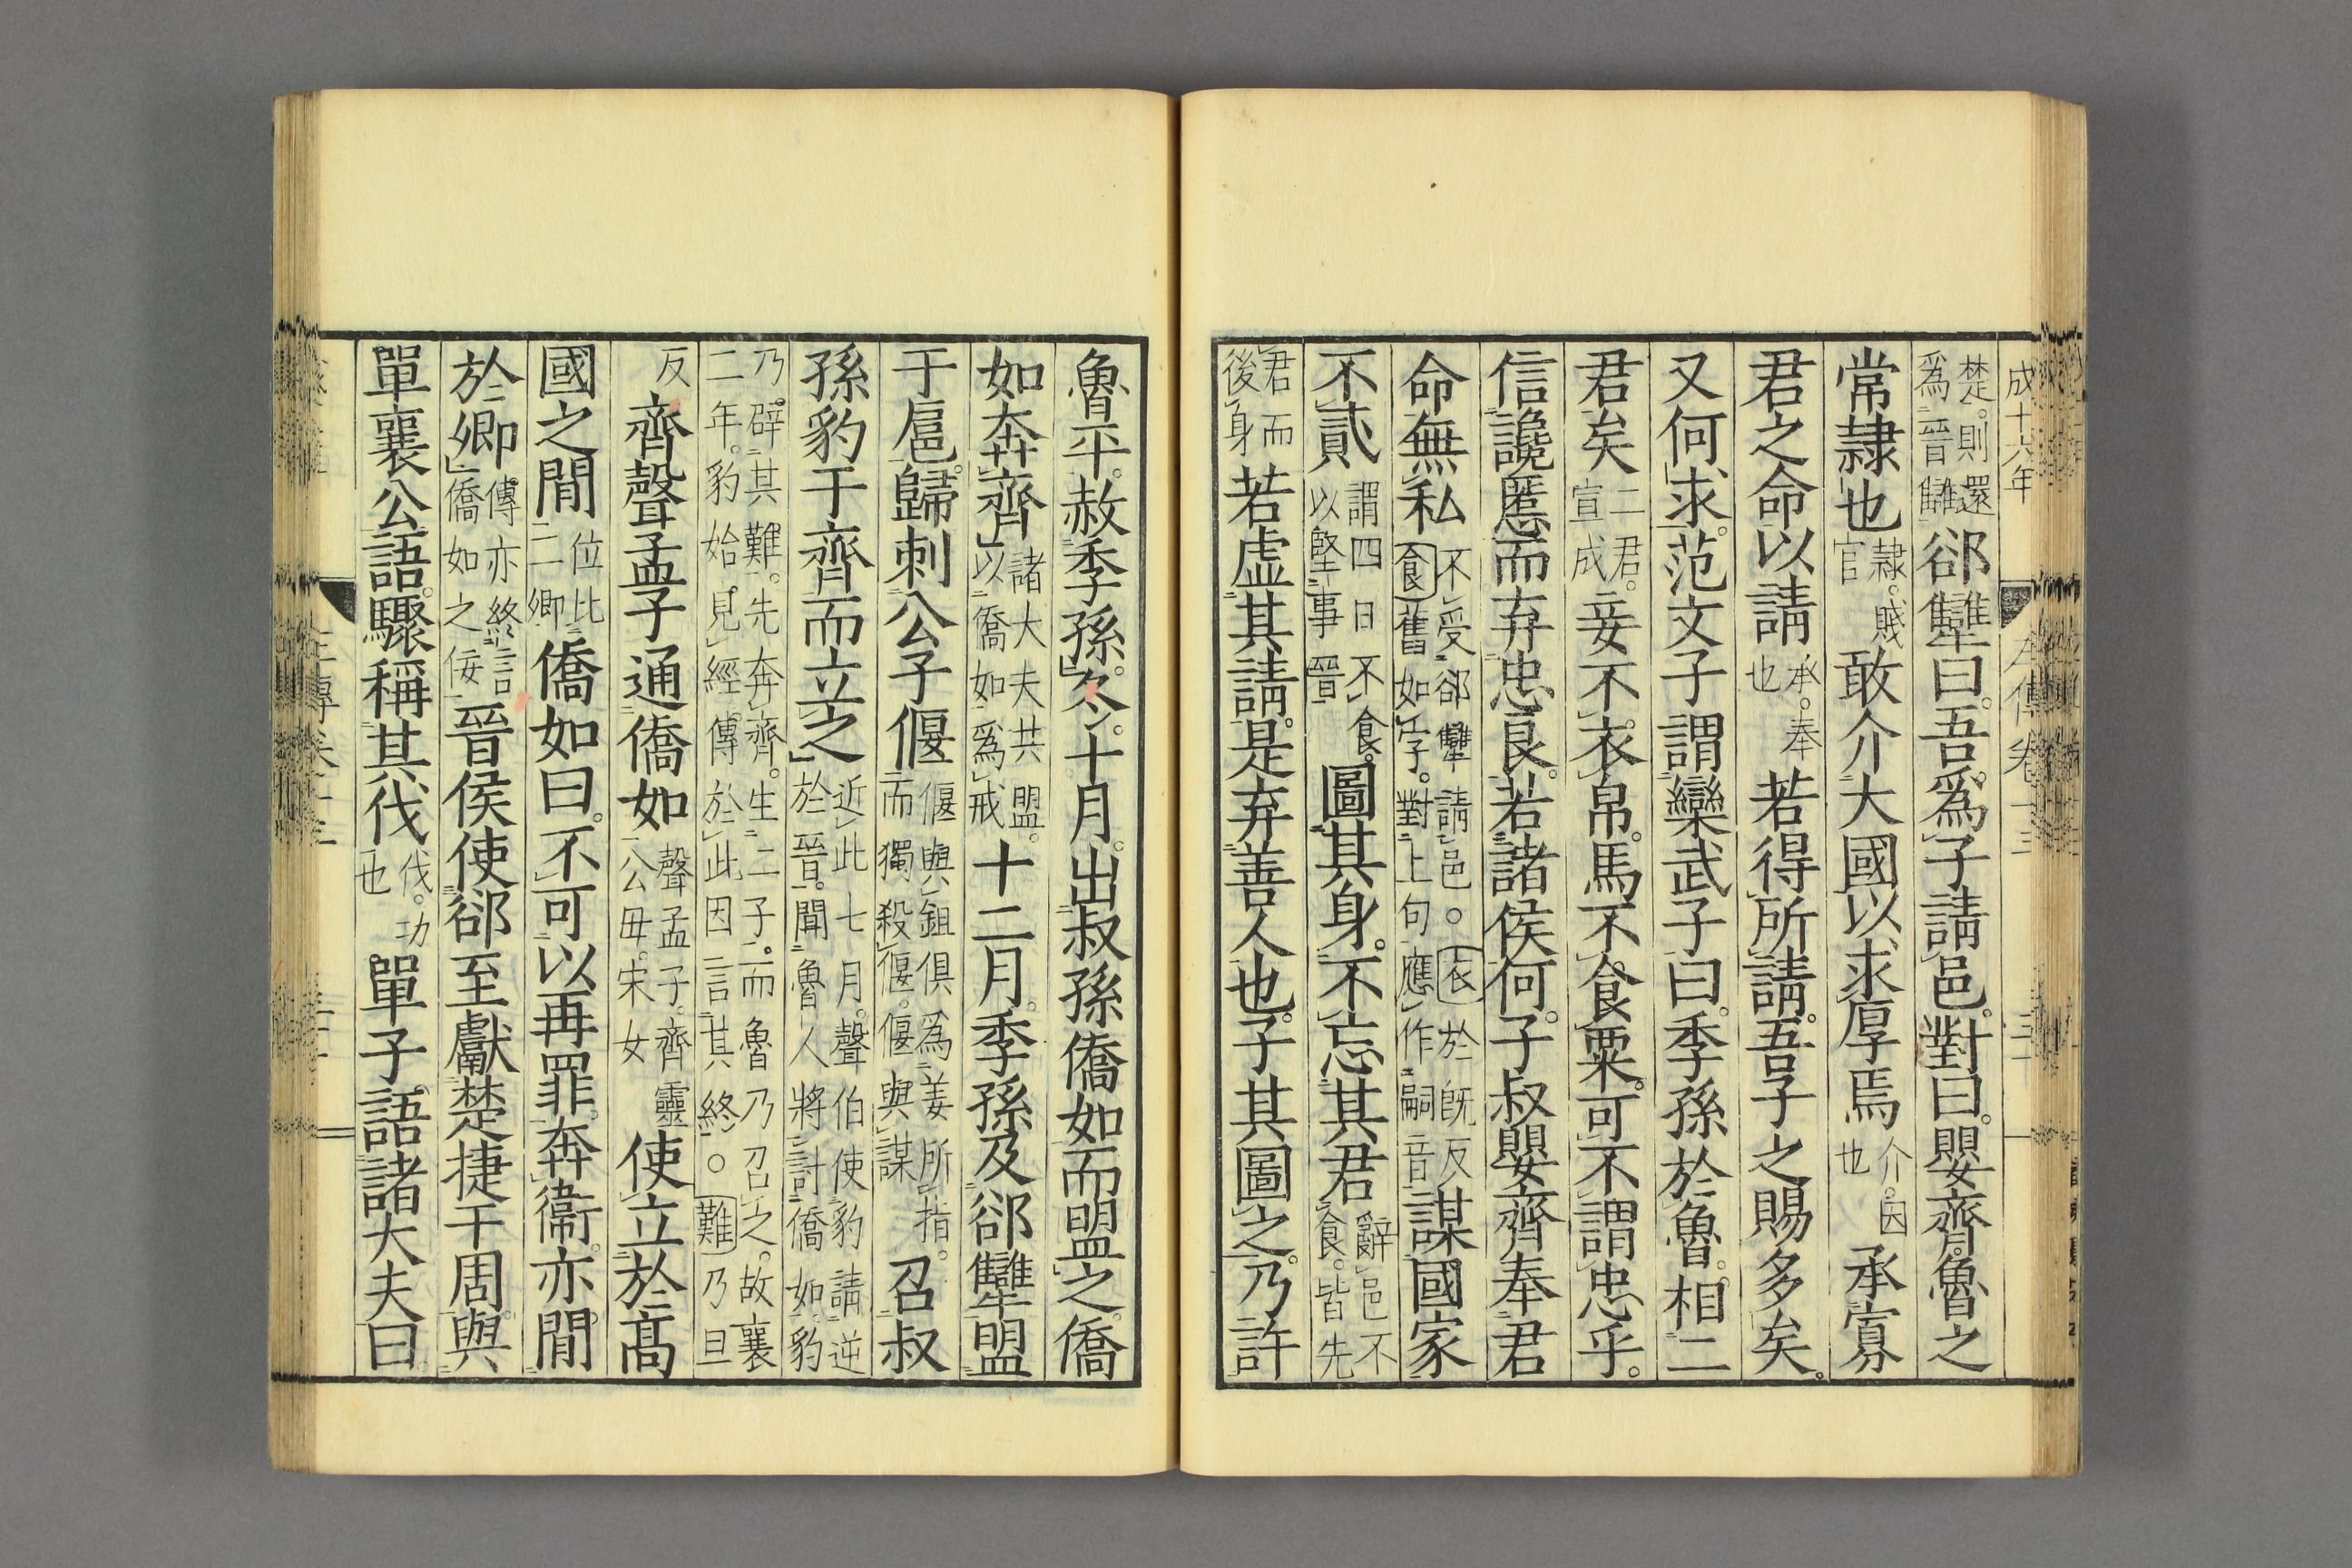 成十六年
左傳卷十三
楚則還爲晉讎郤犫曰吾爲子請邑對曰嬰齊魯之
常隷也隷賤官敢介大國以求厚焉介因也承寡
君之命以請承奉也若得所請吾子之賜多矣
又何求范文子謂欒武子曰季孫於魯相二
君矣二君宣成妾不衣帛馬不食粟可不謂忠乎
信讒慝而弃忠良若諸侯何子叔嬰齊奉君
命無私不受郤犫請邑○衣於既反食舊如字對上句應作嗣音謀國家
不貳謂四日不食以堅事晉圖其身不忘其君辭邑不食皆先
君而後身若虛其請是弃善人也子其圖之乃許
魯平赦季孫冬十月出叔孫僑如而盟之僑
如奔齊諸大夫共盟以僑如爲戒十二月季孫及郤犫盟
于扈歸刺公子偃偃與鉏俱爲姜所指而獨殺偃偃與謀召叔
孫豹于齊而立之近此七月聲伯使豹請逆於晉聞魯人將討僑如豹
乃辟其難先奔齊生二子而魯乃召之故襄二年豹始見經傳於此因言其終○難乃旦
反齊聲孟子通僑如聲孟子齊靈公母宋女使立於高
國之閒位比二卿僑如曰不可以再罪奔衞亦閒
於卿傳亦終言僑如之佞晉侯使郤至獻楚捷于周與
單襄公語驟稱其伐伐功也單子語諸大夫曰